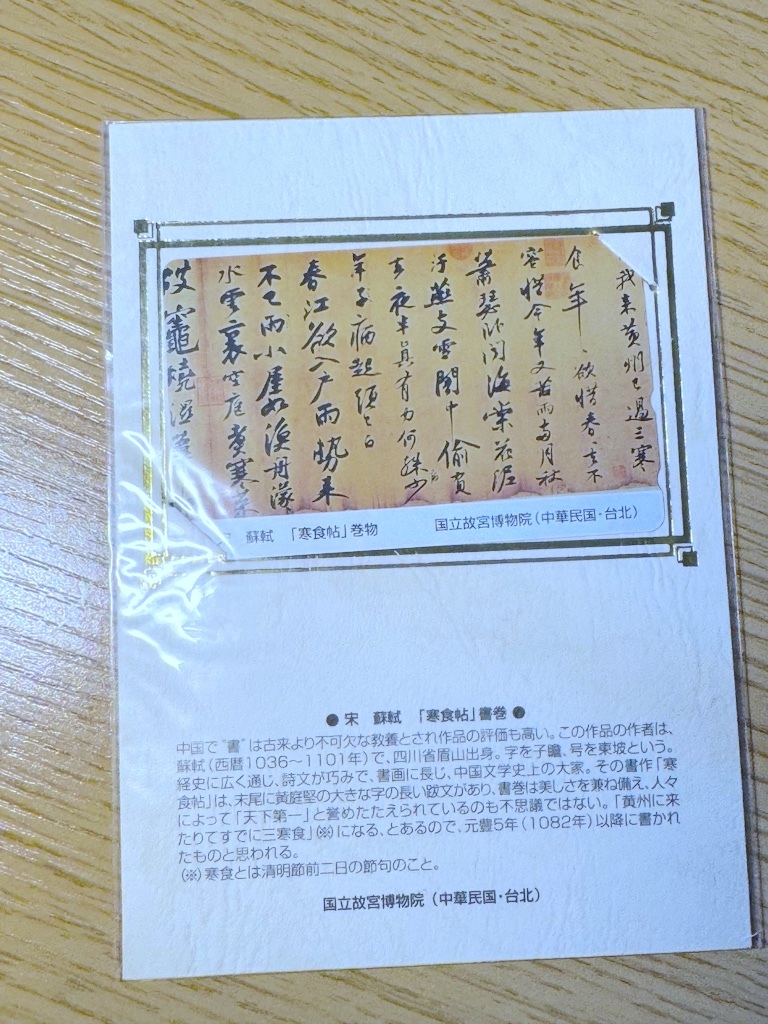 我來黃州已過三寒
食年〻欲惜春〻去不
容惜今年又苦雨兩月秋
蕭瑟臥聞海棠花泥
汙燕支雪闇中偷負
去夜半真有力何殊少
年子病起頭已白
春江欲入戶雨勢来
不已雨小屋如漁舟濛〻
水雲裏空庖煮寒菜
破竈燒濕
蘇軾 「寒食帖」巻物 国立故宮博物院(中華民国・台北)
●宋 蘇軾 「寒食帖」書巻●
中国で“書”は古来より不可欠な教養とされ作品の評価も高い。この作品の作者は、
蘇軾(西暦1036〜1101年)で、四川省眉山出身。字を子瞻、号を東坡という。
経史に広く通じ、詩文が巧みで、書画に長じ、中国文学史上の大家。その書作「寒
食帖」は、末尾に黄庭堅の大きな字の長い跋文があり、書巻は美しさを兼ね備え、人々
によって「天下第一」と誉めたたえられているのも不思議ではない。「黄州に来
たりてすでに三寒食」(※)になる、とあるので、元豊5年(1082年)以降に書かれ
たものと思われる。
(※)寒食とは清明節前二日の節句のこと。
国立故宮博物院(中華民国・台北)